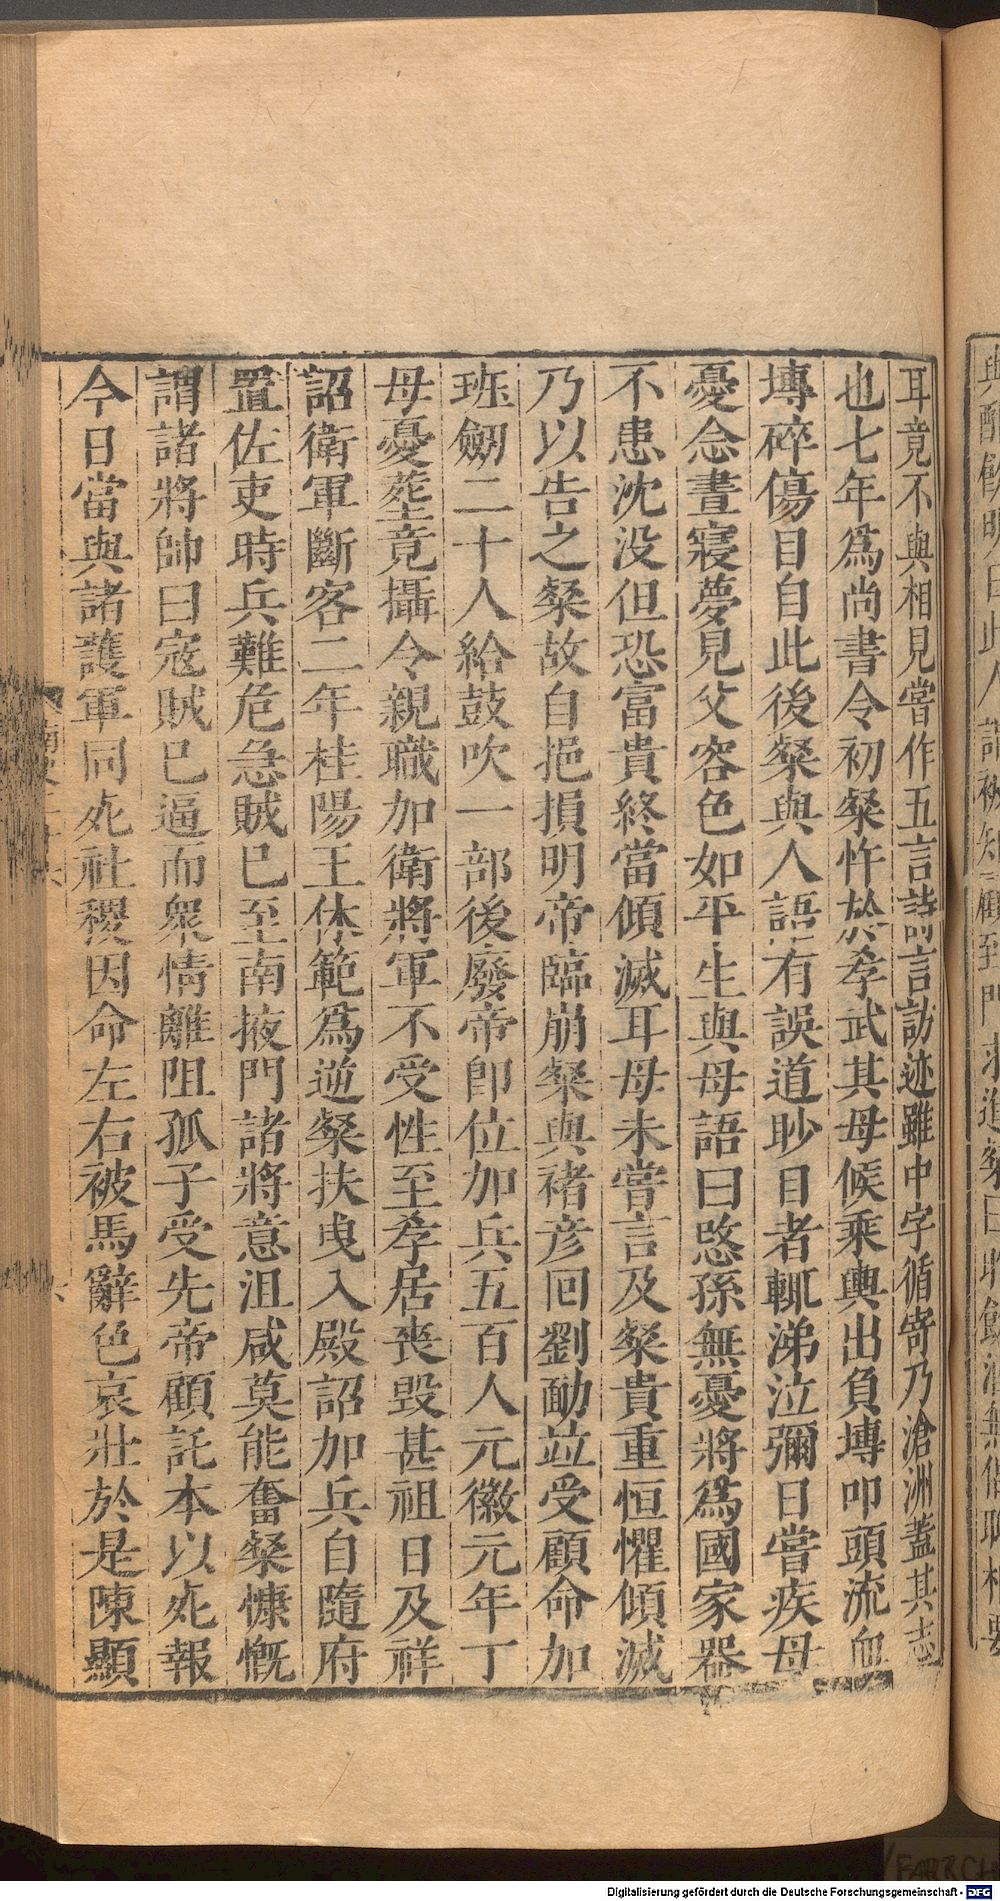 耳竟不與相見嘗作五言詩言訪迹雖中宇循寄乃滄洲蓋其志
也七年爲尚書令初粲忤於孝武其母候乘輿出負塼叩頭流血
塼碎傷目自此後粲與人語有誤道眇目者輒涕泣彌日嘗疾母
憂念晝寢夢見父容色如平生與母語曰愍孫無憂將爲國家器
不患沈没但恐富貴終當傾滅耳母未嘗言及粲貴重恒懼傾滅
乃以告之粲故自挹損明帝臨崩粲與褚彦回劉勔竝受顧命加
班劔二十人給鼓吹一部後廢帝卽位加兵五百人元徽元年丁
母憂葬竟攝令親職加衛將軍不受性至孝居喪毁甚祖日及祥
詔衛軍斷客二年桂陽王休範爲逆粲扶曳入殿詔加兵自隨府
置佐吏時兵難危急賊已至南掖門諸將意沮咸莫能奮粲慷慨
謂諸將帥曰寇賊已逼而衆情離阻孤子受先帝顧託本以死報
今日當與諸護軍同死社稷因命左右被馬辭色哀壯於是陳顯
Digitalisierung gefördert durch die Deutsche Forschungsgemeinschaft - DFG